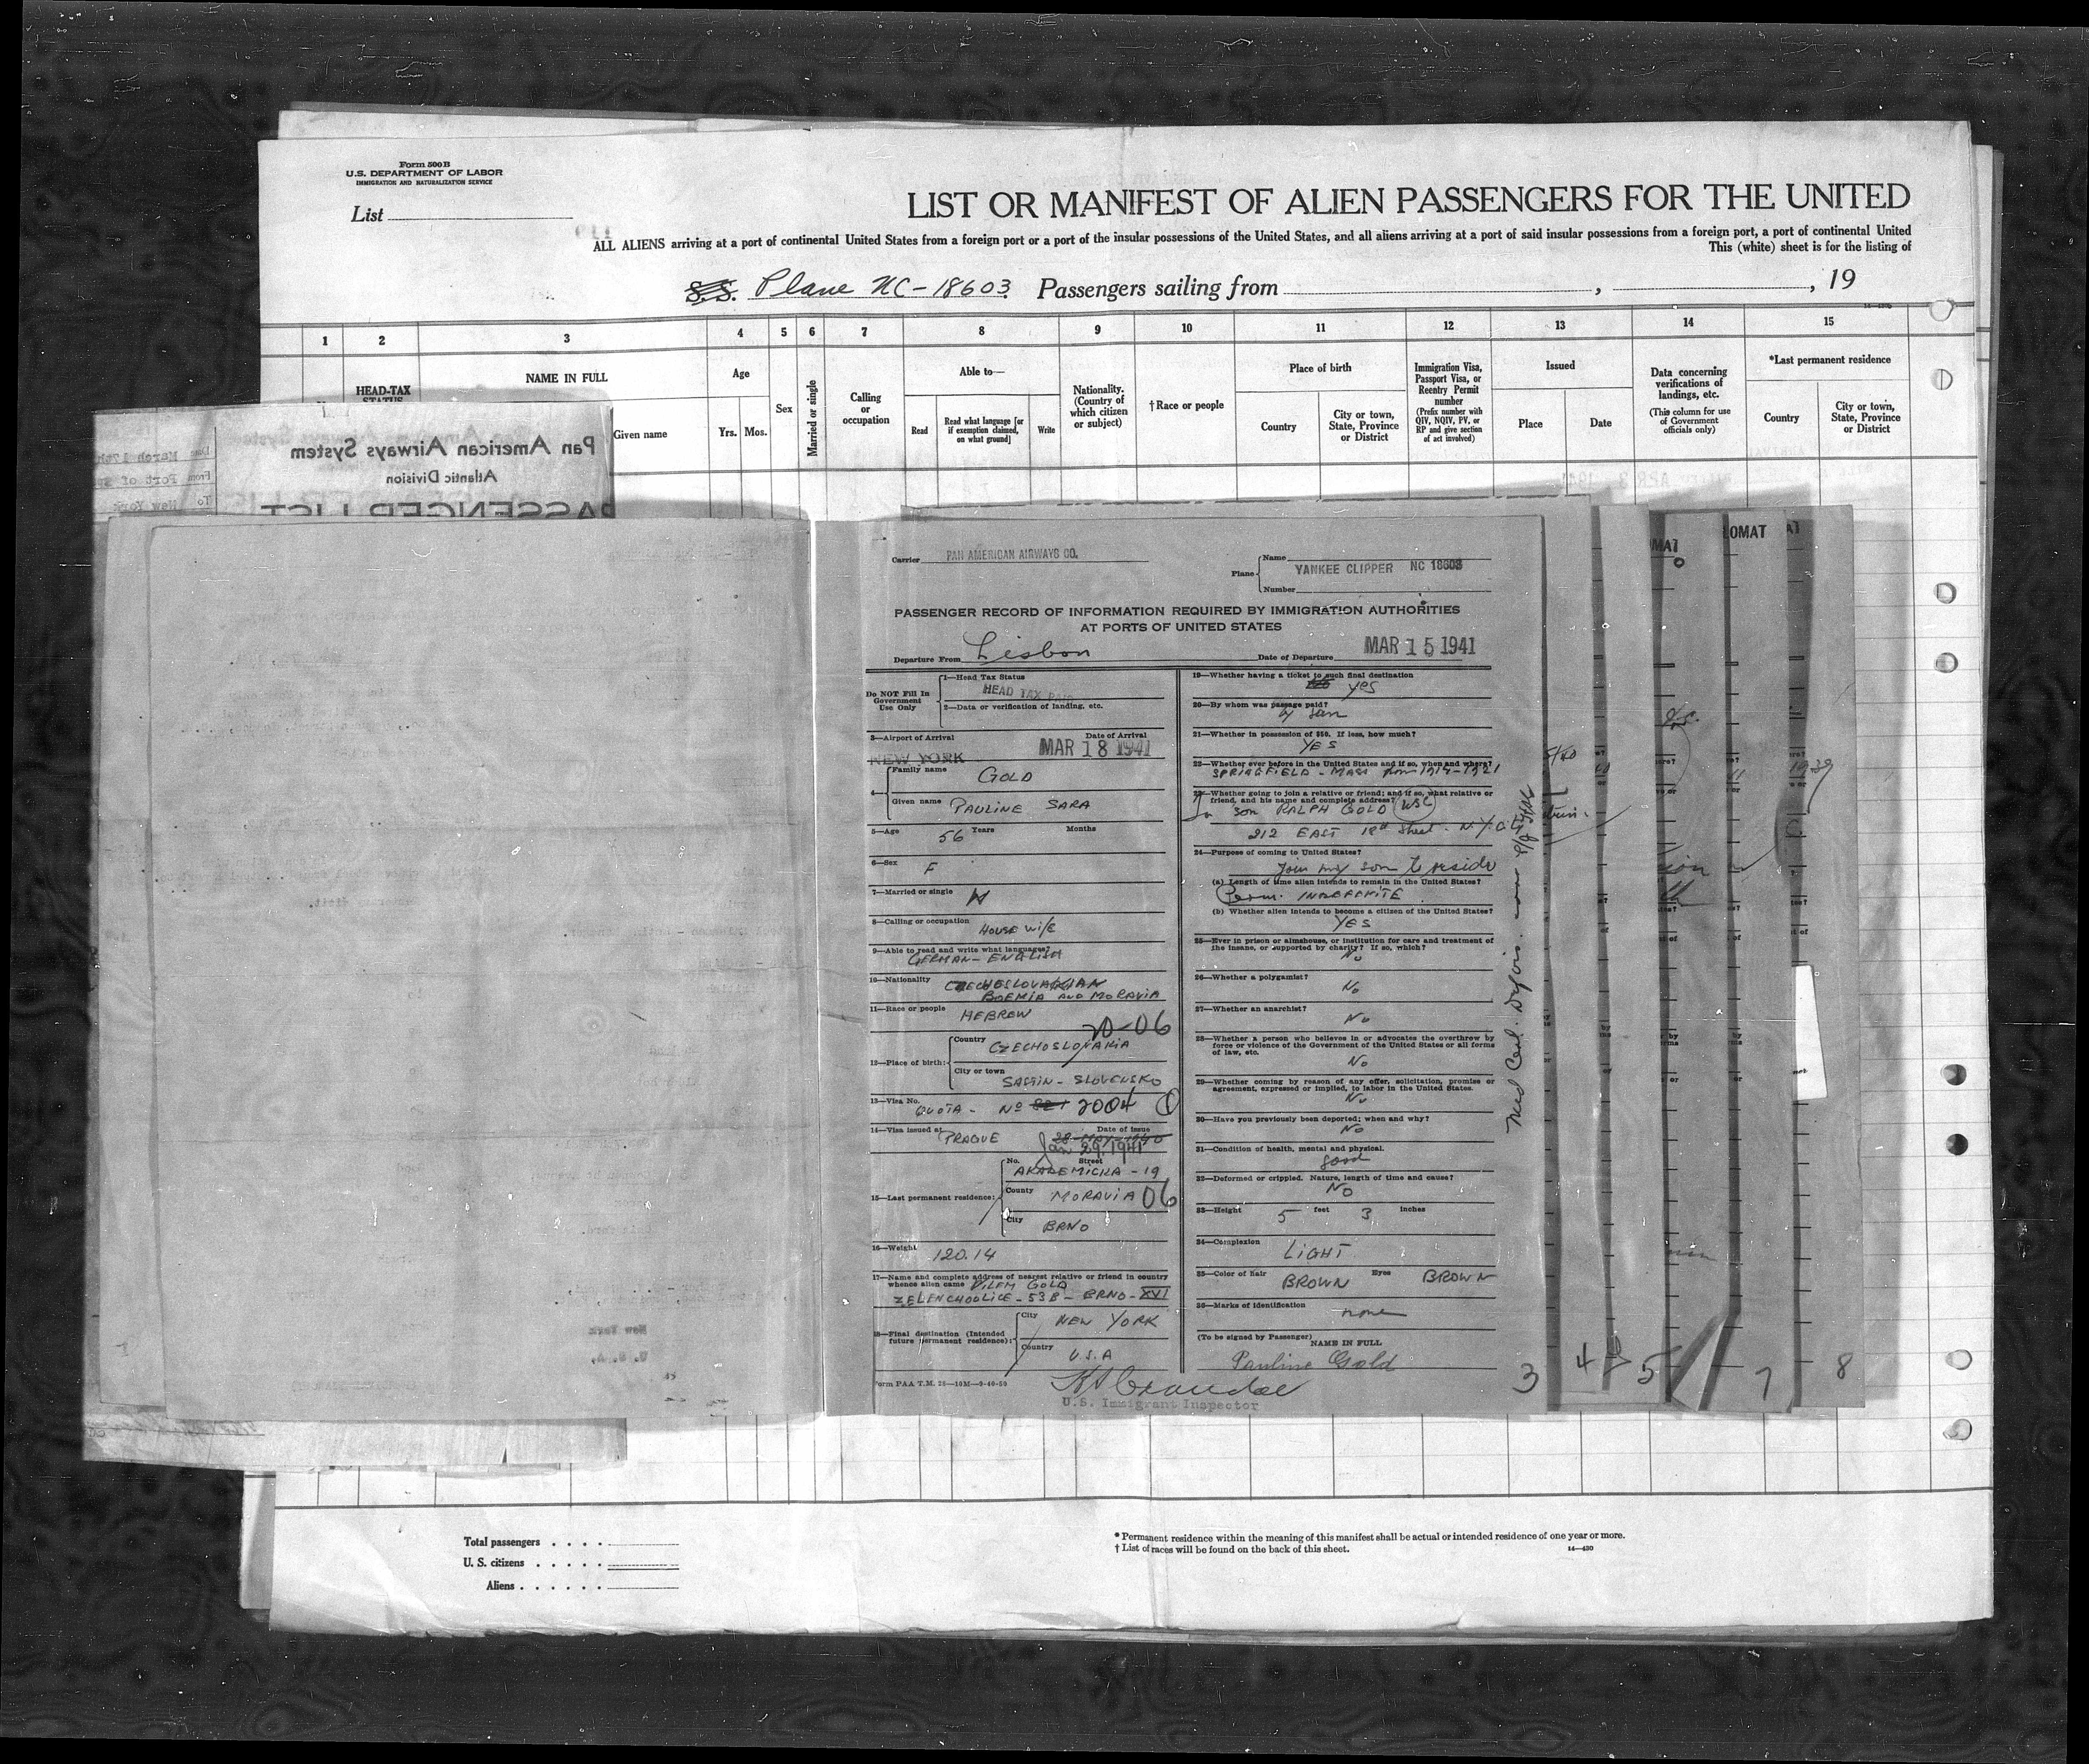 Form 500 B
U.S. DEPARTMENT OF LABOR
IMMIGRATION AND NATURALIZATION SERVICE
List
LIST OR MANIFEST OF ALIEN PASSENGERS FOR THE UNITED
ALL ALIENS arriving at a port of continental United States from a foreign port or a port of the insular possessions of the United States, and all aliens arriving at a port of said insular possessions from a foreign port, a port of continental United
This (white) sheet is for the listing of
S.S. Plane NC-18603 Passengers sailing from , , 19
1 2 3 4 5 6 7 8 9 10 11 12 13 14 15
HEAD-TAX STATUS
NAME IN FULL
Given name
Age
Yrs. Mos.
Sex
Married or single
Calling or occupation
Able to—
Read
Read what language [or if exemption claimed, on what ground]
Write
Nationality. (Country of which citizen or subject)
† Race or people
Place of birth
Country
City or town, State, Province or District
Immigration Visa, Passport Visa, or Reentry Permit number
(Prefix number with QIV, NQIV, PV, or RP and give section of act involved)
Issued
Place
Date
Data concerning verifications of landings, etc.
(This column for use of Government officials only)
*Last permanent residence
Country
City or town, State, Province or District
Pan American Airways System
Atlantic Division
PASSENGER LIST
Date March 17th
From Port of
To New York
Carrier PAN AMERICAN AIRWAYS CO.
Plane Name YANKEE CLIPPER NC 18603
Number
PASSENGER RECORD OF INFORMATION REQUIRED BY IMMIGRATION AUTHORITIES
AT PORTS OF UNITED STATES
Departure From Lisbon Date of Departure MAR 15 1941
Do NOT Fill In Government Use Only
1—Head Tax Status
HEAD TAX PAID
2—Data or verification of landing, etc.
3—Airport of Arrival Date of Arrival
NEW YORK MAR 18 1941
4— Family name GOLD
Given name PAULINE SARA
5—Age 56 Years Months
6—Sex F
7—Married or single W
8—Calling or occupation HOUSE WIFE
9—Able to read and write what languages?
GERMAN - ENGLISH
10—Nationality CZECHOSLOVAKIAN
BOEMIA AND MORAVIA
11—Race or people HEBREW
20-06
12—Place of birth: Country CZECHOSLOVAKIA
City or town SASTIN - SLOVENSKO
13—Visa No. QUOTA - No 821 2004
14—Visa issued at PRAGUE Date of issue 28-MAY-1940
Jan 29, 1941
15—Last permanent residence: No. Street AKADEMICKA - 19
County MORAVIA 06
City BRNO
16—Weight 120.14
17—Name and complete address of nearest relative or friend in country whence alien came VILEM GOLD
ZELENCHOOLICE - 53B - BRNO - XVI
18—Final destination (Intended future permanent residence): City NEW YORK
Country U.S.A
Form PAA T.M. 26—10M—9-40-50
U.S. Immigrant Inspector
19—Whether having a ticket to such final destination
yes
20—By whom was passage paid?
by son
21—Whether in possession of $50. If less, how much?
YES
22—Whether ever before in the United States and if so, when and where?
SPRINGFIELD - MASS from 1914-1921
23—Whether going to join a relative or friend; and if so, what relative or friend, and his name and complete address?
son RALPH GOLD USC
212 EAST 18th Street - N.Y.C.
24—Purpose of coming to United States?
Join my son to reside
(a) Length of time alien intends to remain in the United States?
Perm. INDEFINITE
(b) Whether alien intends to become a citizen of the United States?
YES
25—Ever in prison or almshouse, or institution for care and treatment of the insane, or supported by charity? If so, which?
No
26—Whether a polygamist?
No
27—Whether an anarchist?
No
28—Whether a person who believes in or advocates the overthrow by force or violence of the Government of the United States or all forms of law, etc.
No
29—Whether coming by reason of any offer, solicitation, promise or agreement, expressed or implied, to labor in the United States.
No
30—Have you previously been deported; when and why?
No
31—Condition of health, mental and physical.
good
32—Deformed or crippled. Nature, length of time and cause?
NO
33—Height 5 feet 3 inches
34—Complexion LIGHT
35—Color of hair BROWN Eyes BROWN
36—Marks of identification none
(To be signed by Passenger)
NAME IN FULL
Pauline Gold
Med Cert.
3 4 5 7 8
Total passengers . . . .
U. S. citizens . . . . .
Aliens . . . . . .
* Permanent residence within the meaning of this manifest shall be actual or intended residence of one year or more.
† List of races will be found on the back of this sheet.
14—430